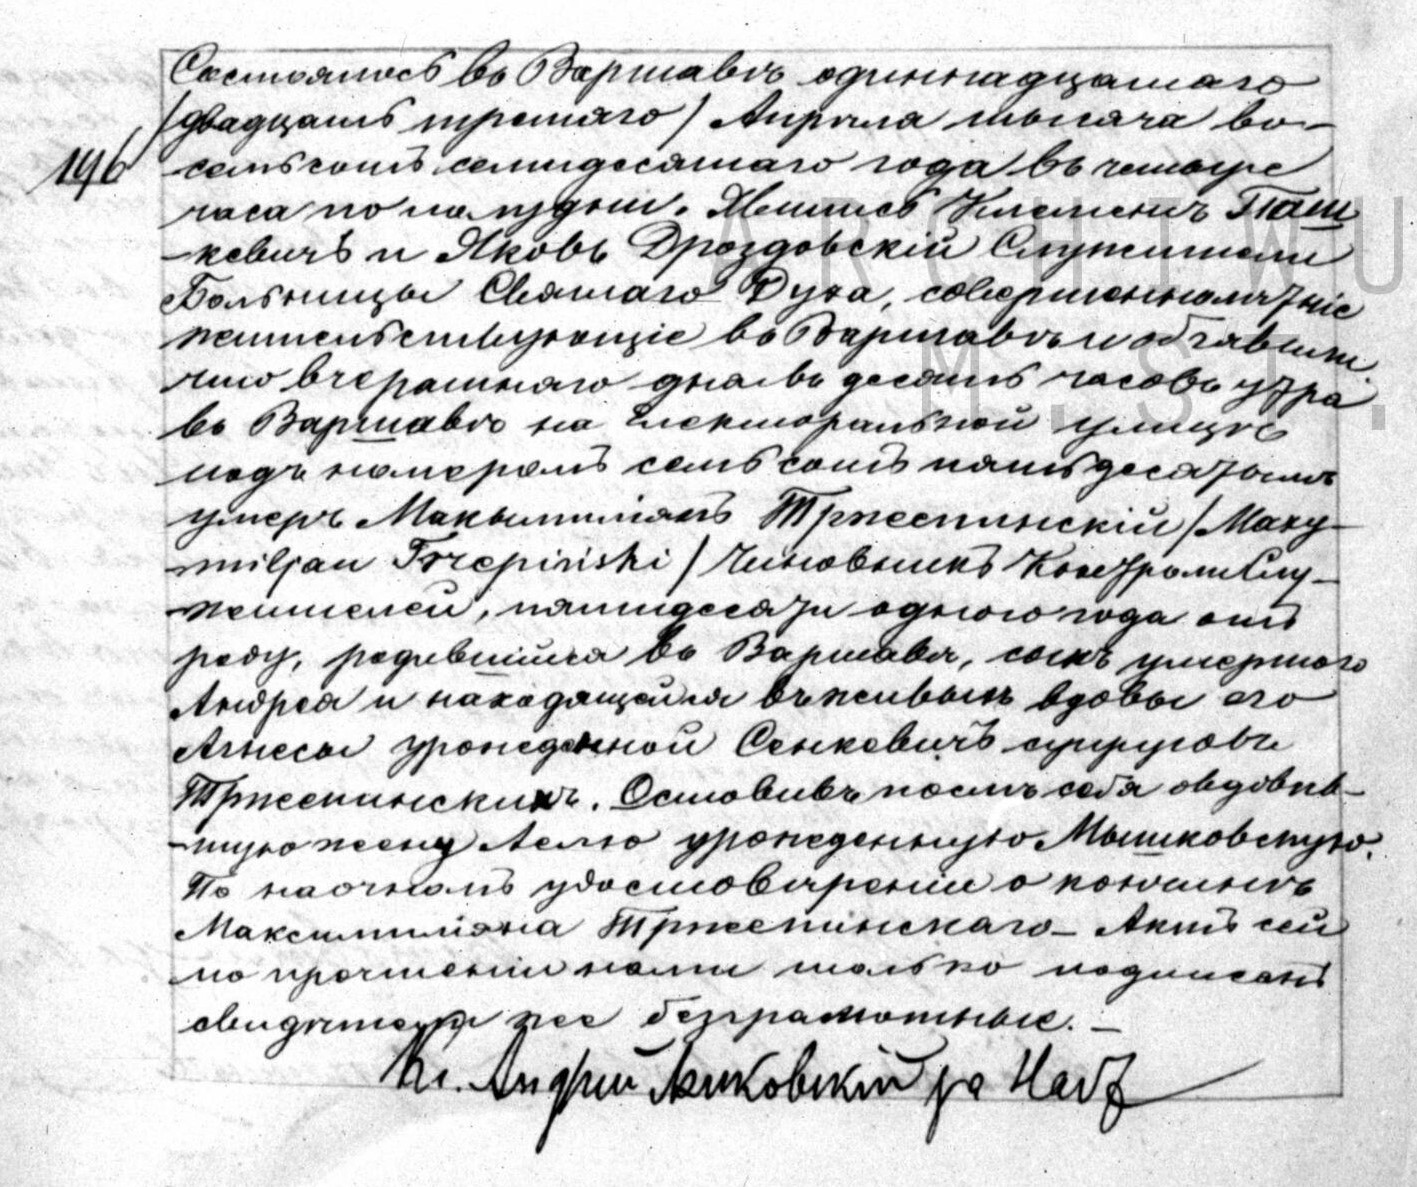 Состоялось въ Варшавѣ одиннадцатаго
/двадцать третяго/ Апрѣля тысяча во-
196
семьсотъ семидесятаго года въ четыре
часа по полудни. Явились Клеменсъ Паш
-кевичъ и Яковъ Дроздовскій Служители
Больницы Святаго Духа, совершеннолѣтніе
жительствующіе въ Варшавѣ и объявили
что вчерашняго дня въ десять часовъ утра
въ Варшавѣ на Электоральной улицѣ
подъ номеромъ семьсотъ пятьдесятымъ
умеръ Максымиліянъ Тржепинскій /Maxy-
miljan Trzepiński/ Чиновникъ Контроли Слу-
-жителей, пятидесяти одного года отъ
роду, родившійся въ Варшавѣ, сынъ умершого
Андрея и находящейся въ живыхъ вдовы его
Агнесы урожденной Сенкевичъ супруговъ
Тржепинскихъ. Оставивъ послѣ себя овдовѣв-
-шую жену урожденную Мышковскую.
По наочномъ удостовѣреніи о кончинѣ
Максимиліяна Тржепинскаго – Актъ сей
по прочтеніи нами только подписанъ
свидѣтели же безграмотные. –
Кс. Андрей за Наст
ARCHIWU
M.ST.